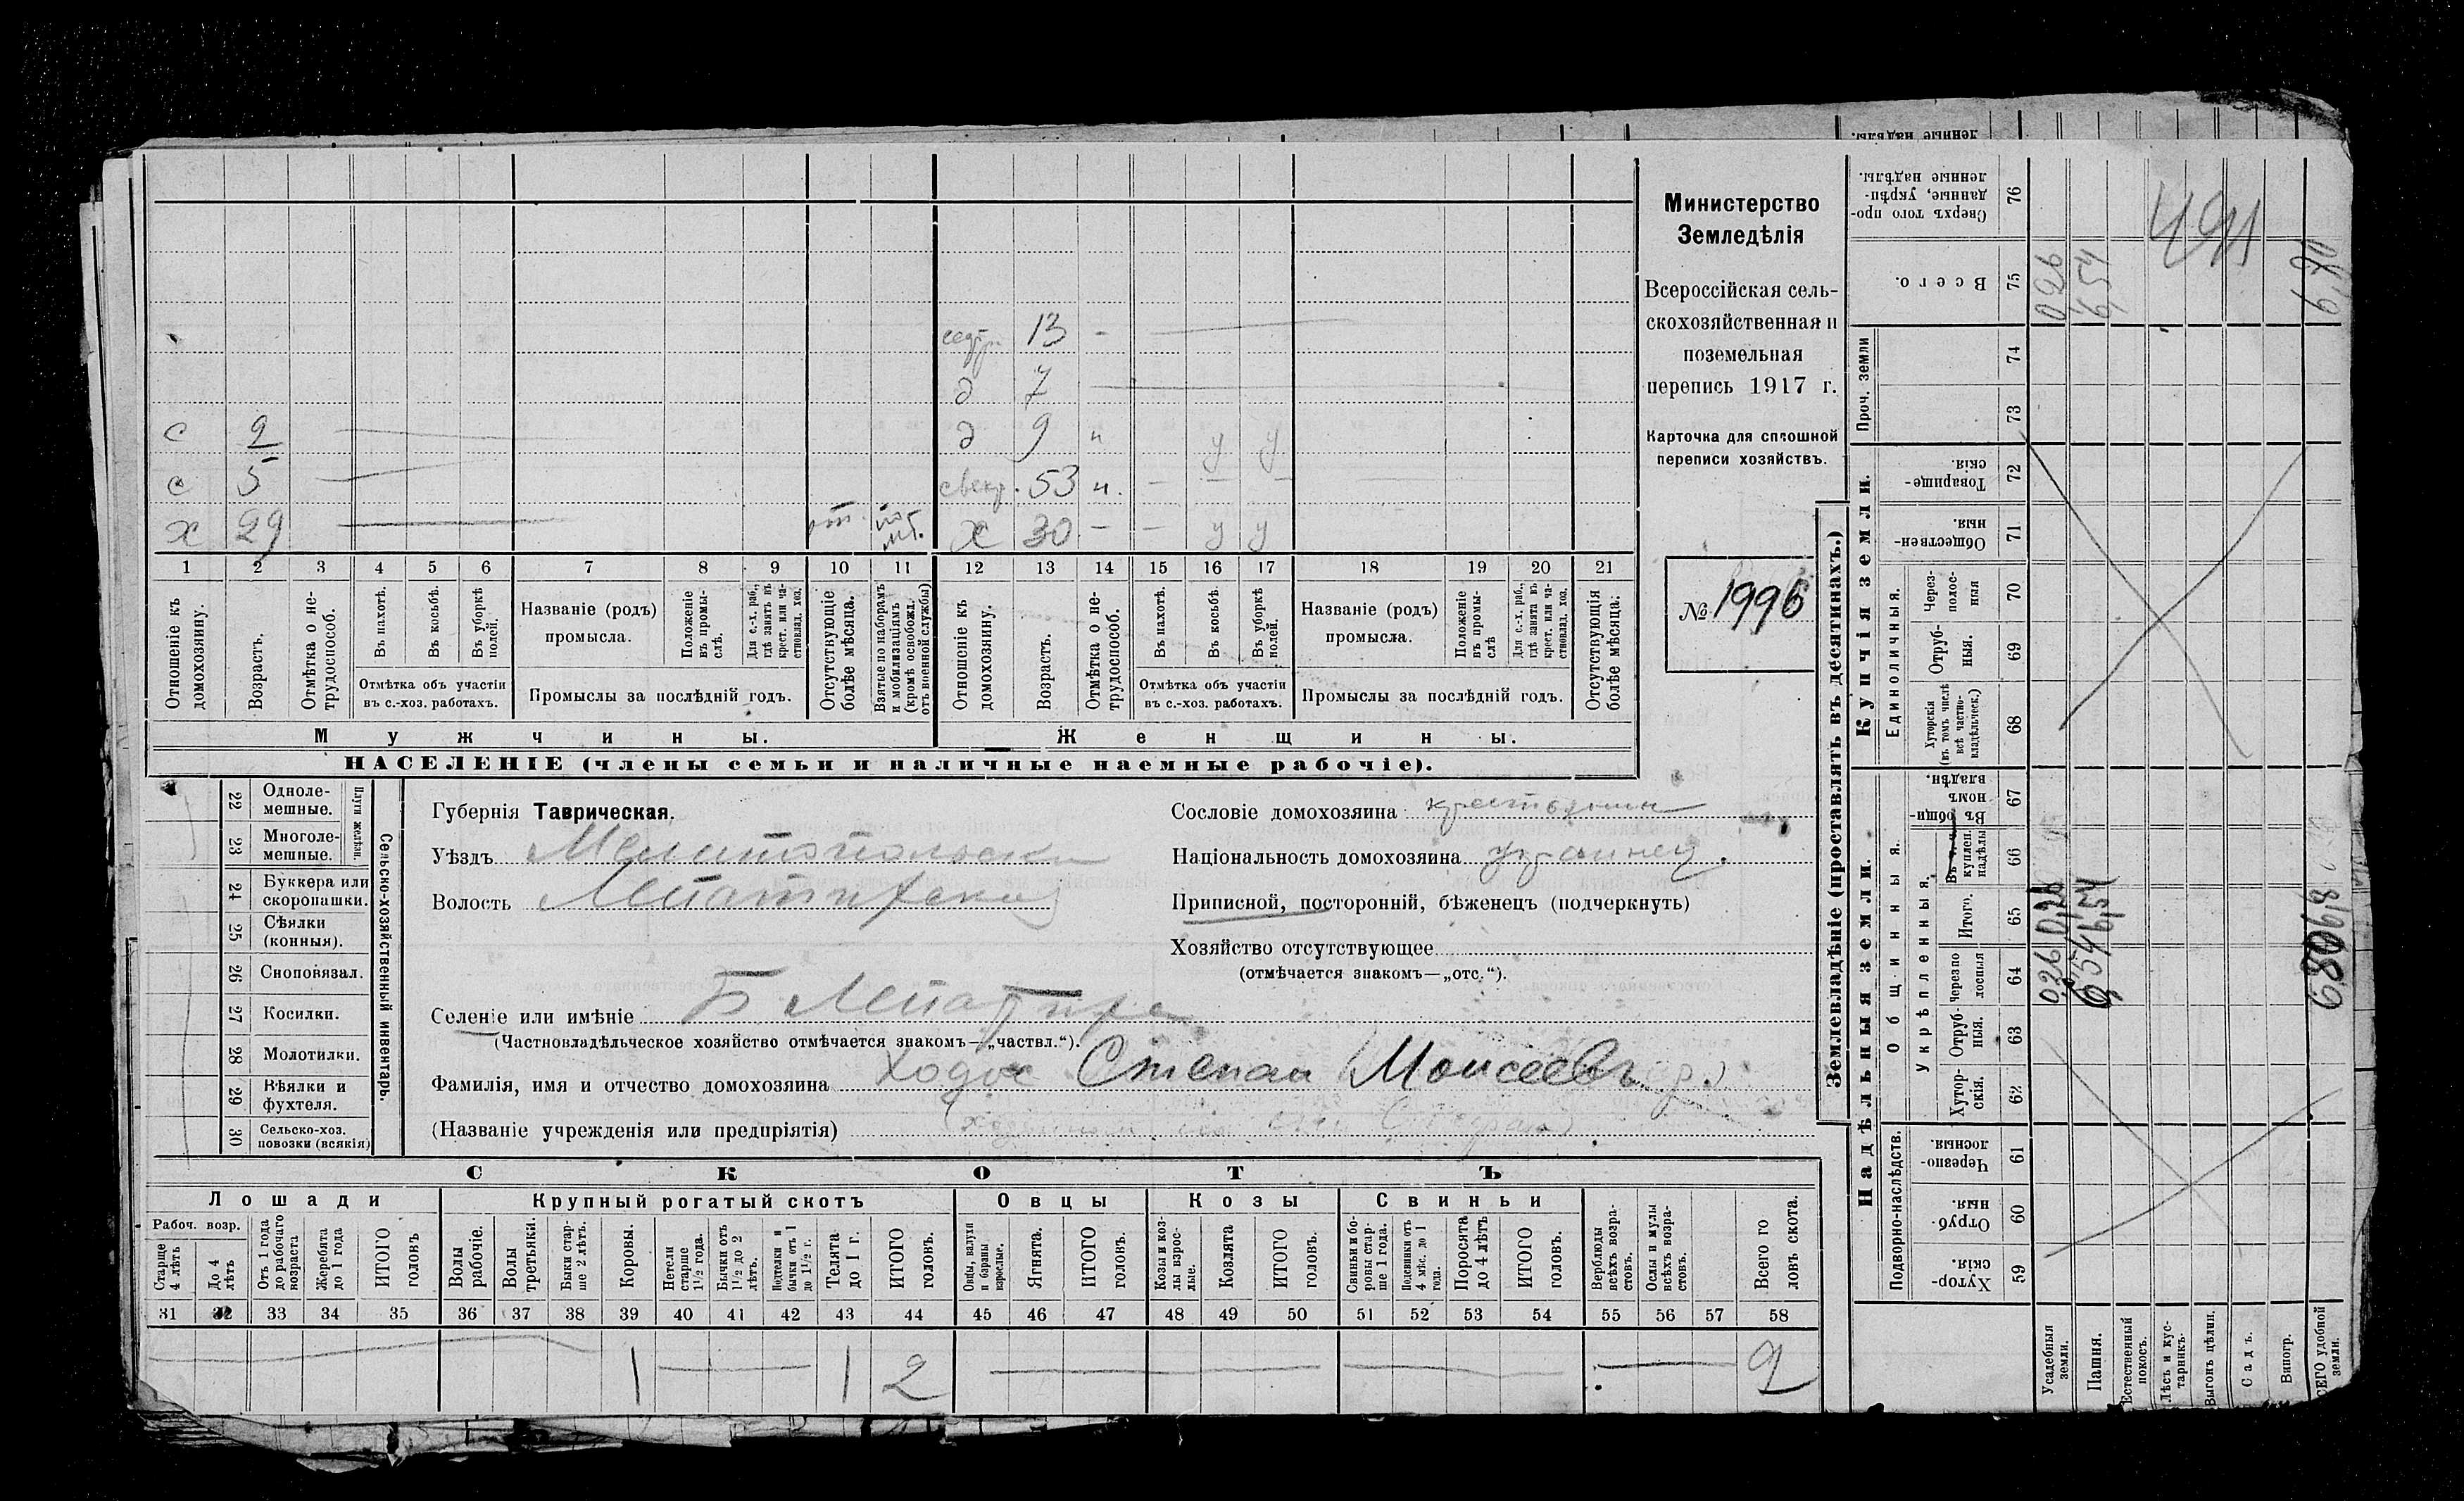 Министерство
Земледѣлія
Всероссійская сель-
скохозяйственная и
поземельная
перепись 1917 г.
Карточка для сплошной
переписи хозяйствъ.
№ 1996
сестр. 13 –
д 7
с 2 д 9 н у у
с 5 свекр. 53 н. – – –
х 29 от. по моб. х 30 – – у у
1 2 3 4 5 6 7 8 9 10 11 12 13 14 15 16 17 18 19 20 21
Отношеніе къ домохозяину.
Возрастъ.
Отмѣтка о не-трудоспособ.
Въ пахотѣ.
Въ косьбѣ.
Въ уборкѣ полей.
Отмѣтка объ участіи въ с.-хоз. работахъ.
Названіе (родъ) промысла.
Положеніе въ промы-слѣ.
Для с.-х. раб., гдѣ занятъ въ крест. или ча-стновлад. хоз.
Промыслы за послѣдній годъ.
Отсутствующіе болѣе мѣсяца.
Взятые по наборамъ и мобилизаціямъ (кромѣ освобожд. отъ военной службы)
Отношеніе къ домохозяину.
Возрастъ.
Отмѣтка о не-трудоспособ.
Въ пахотѣ.
Въ косьбѣ.
Въ уборкѣ полей.
Отмѣтка объ участіи въ с.-хоз. работахъ.
Названіе (родъ) промысла.
Положеніе въ промы-слѣ
Для с.-х. раб., гдѣ занятъ въ крест. или ча-стновлад. хоз.
Промыслы за послѣдній годъ.
Отсутствующія болѣе мѣсяца.
Мужчины.
Женщины.
НАСЕЛЕНІЕ (члены семьи и наличные наемные рабочіе).
Сельско-хозяйственный инвентарь.
Плуги желѣзн.
22 Одноле-мешные.
23 Многоле-мешные.
24 Буккера или скоропашки.
25 Сѣялки (конныя).
26 Сноповязал.
27 Косилки.
28 Молотилки.
29 Вѣялки и фухтеля.
30 Сельско-хоз. повозки (всякія)
Губернія Таврическая.
Уѣздъ Мелитопольскій
Волость Лепатихская
Селеніе или имѣніе Б Лепатиха
(Частновладѣльческое хозяйство отмѣчается знакомъ—„частвл.“).
Фамилія, имя и отчество домохозяина Ходос Степан Моисеевъ
(Названіе учрежденія или предпріятія)
Сословіе домохозяина крестьянин
Національность домохозяина украинец.
Приписной, посторонній, бѣженецъ (подчеркнуть)
Хозяйство отсутствующее
(отмѣчается знакомъ—„отс.“).
СКОТЪ
Лошади
Рабоч. возр.
Старше 4 лѣтъ
До 4 лѣтъ
Отъ 1 года до рабочаго возраста
Жеребята до 1 года
ИТОГО головъ
Крупный рогатый скотъ
Волы рабочіе.
Волы третьяки.
Быки стар-ше 2 лѣтъ.
Коровы.
Нетели старше 1½ года.
Бычки отъ 1½ до 2 лѣтъ.
Подтелки и бычки отъ 1 до 1½ г.
Телята до 1 г.
ИТОГО головъ.
Овцы
Овцы, валухи и бараны взрослые.
Ягнята.
ИТОГО головъ.
Козы
Козы и коз-лы взрос-лые.
Козлята
ИТОГО головъ.
Свиньи
Свиньи и бо-ровы стар-ше 1 года.
Подсвинки отъ 4 мѣс. до 1 года.
Поросята до 4 лѣтъ
ИТОГО головъ.
Верблюды всѣхъ возра-стовъ.
Ослы и мулы всѣхъ возра-стовъ.
Всего го ловъ скота.
31 32 33 34 35 36 37 38 39 40 41 42 43 44 45 46 47 48 49 50 51 52 53 54 55 56 57 58
1 1 2 2
Землевладѣніе (проставлять въ десятинахъ.)
Надѣльныя земли.
Подворно-наслѣдств.
Хутор-скія. 59
Отруб-ныя. 60
Черезпо-лосныя. 61
Общинныя.
Укрѣпленныя.
Хутор-скія. 62
Отруб-ныя. 63
Черезпо лосныя 64
Итого. 65
Въ т. ч. куплен. надѣлы 66
Въ общи-номъ владѣн. 67
Купчія земли.
Единоличныя.
Хуторскія (въ томъ числѣ всѣ частно-владѣльческ.) 68
Отруб-ныя. 69
Через-полос-ныя 70
Обществен-ныя. 71
Товарище-скія. 72
Проч. земли
73
74
Всего. 75
Сверхъ того про-данные, укрѣп-ленные надѣлы. 76
Усадебныя земли. 026 026
Пашня. 6,54 6,54 6,54
Естественный покосъ.
Лѣсъ и кус-тарникъ.
Выгонъ цѣлин.
Садъ.
Виногр.
ВСЕГО удобной земли.
ленные надѣлы.